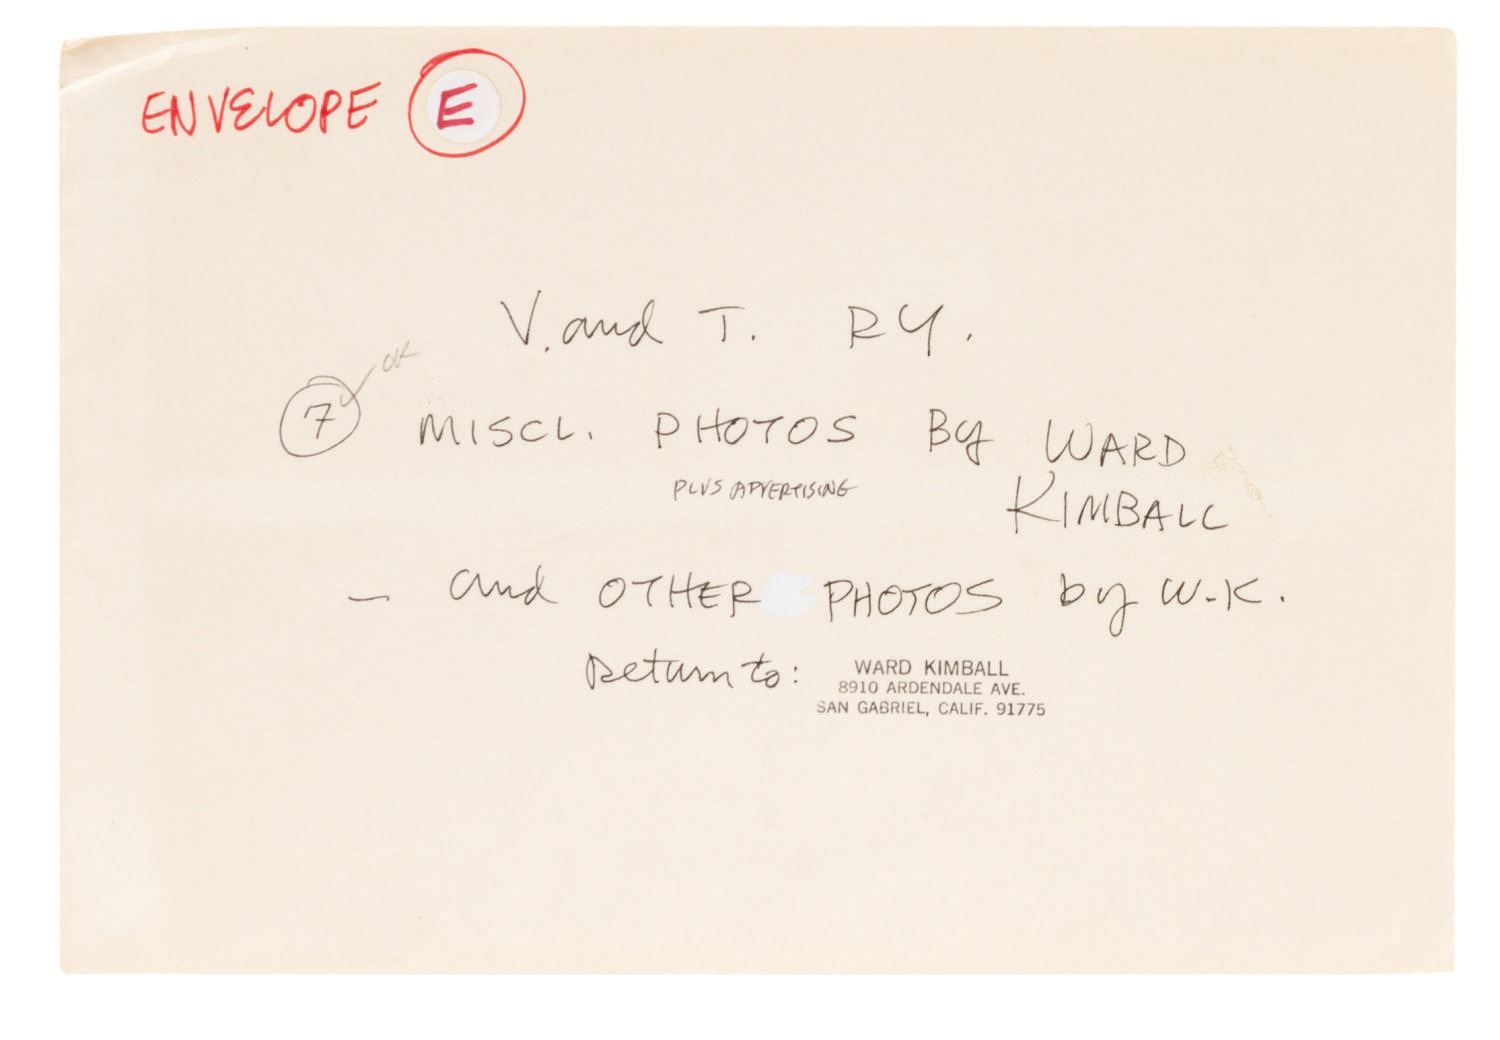 ENVELOPE E
V. and T. RY.
OK
7 MISCL. PHOTOS By WARD
PLUS ADVERTISING
KIMBALL
— and OTHER PHOTOS by W.K.
Return to:
WARD KIMBALL
8910 ARDENDALE AVE.
SAN GABRIEL, CALIF. 91775